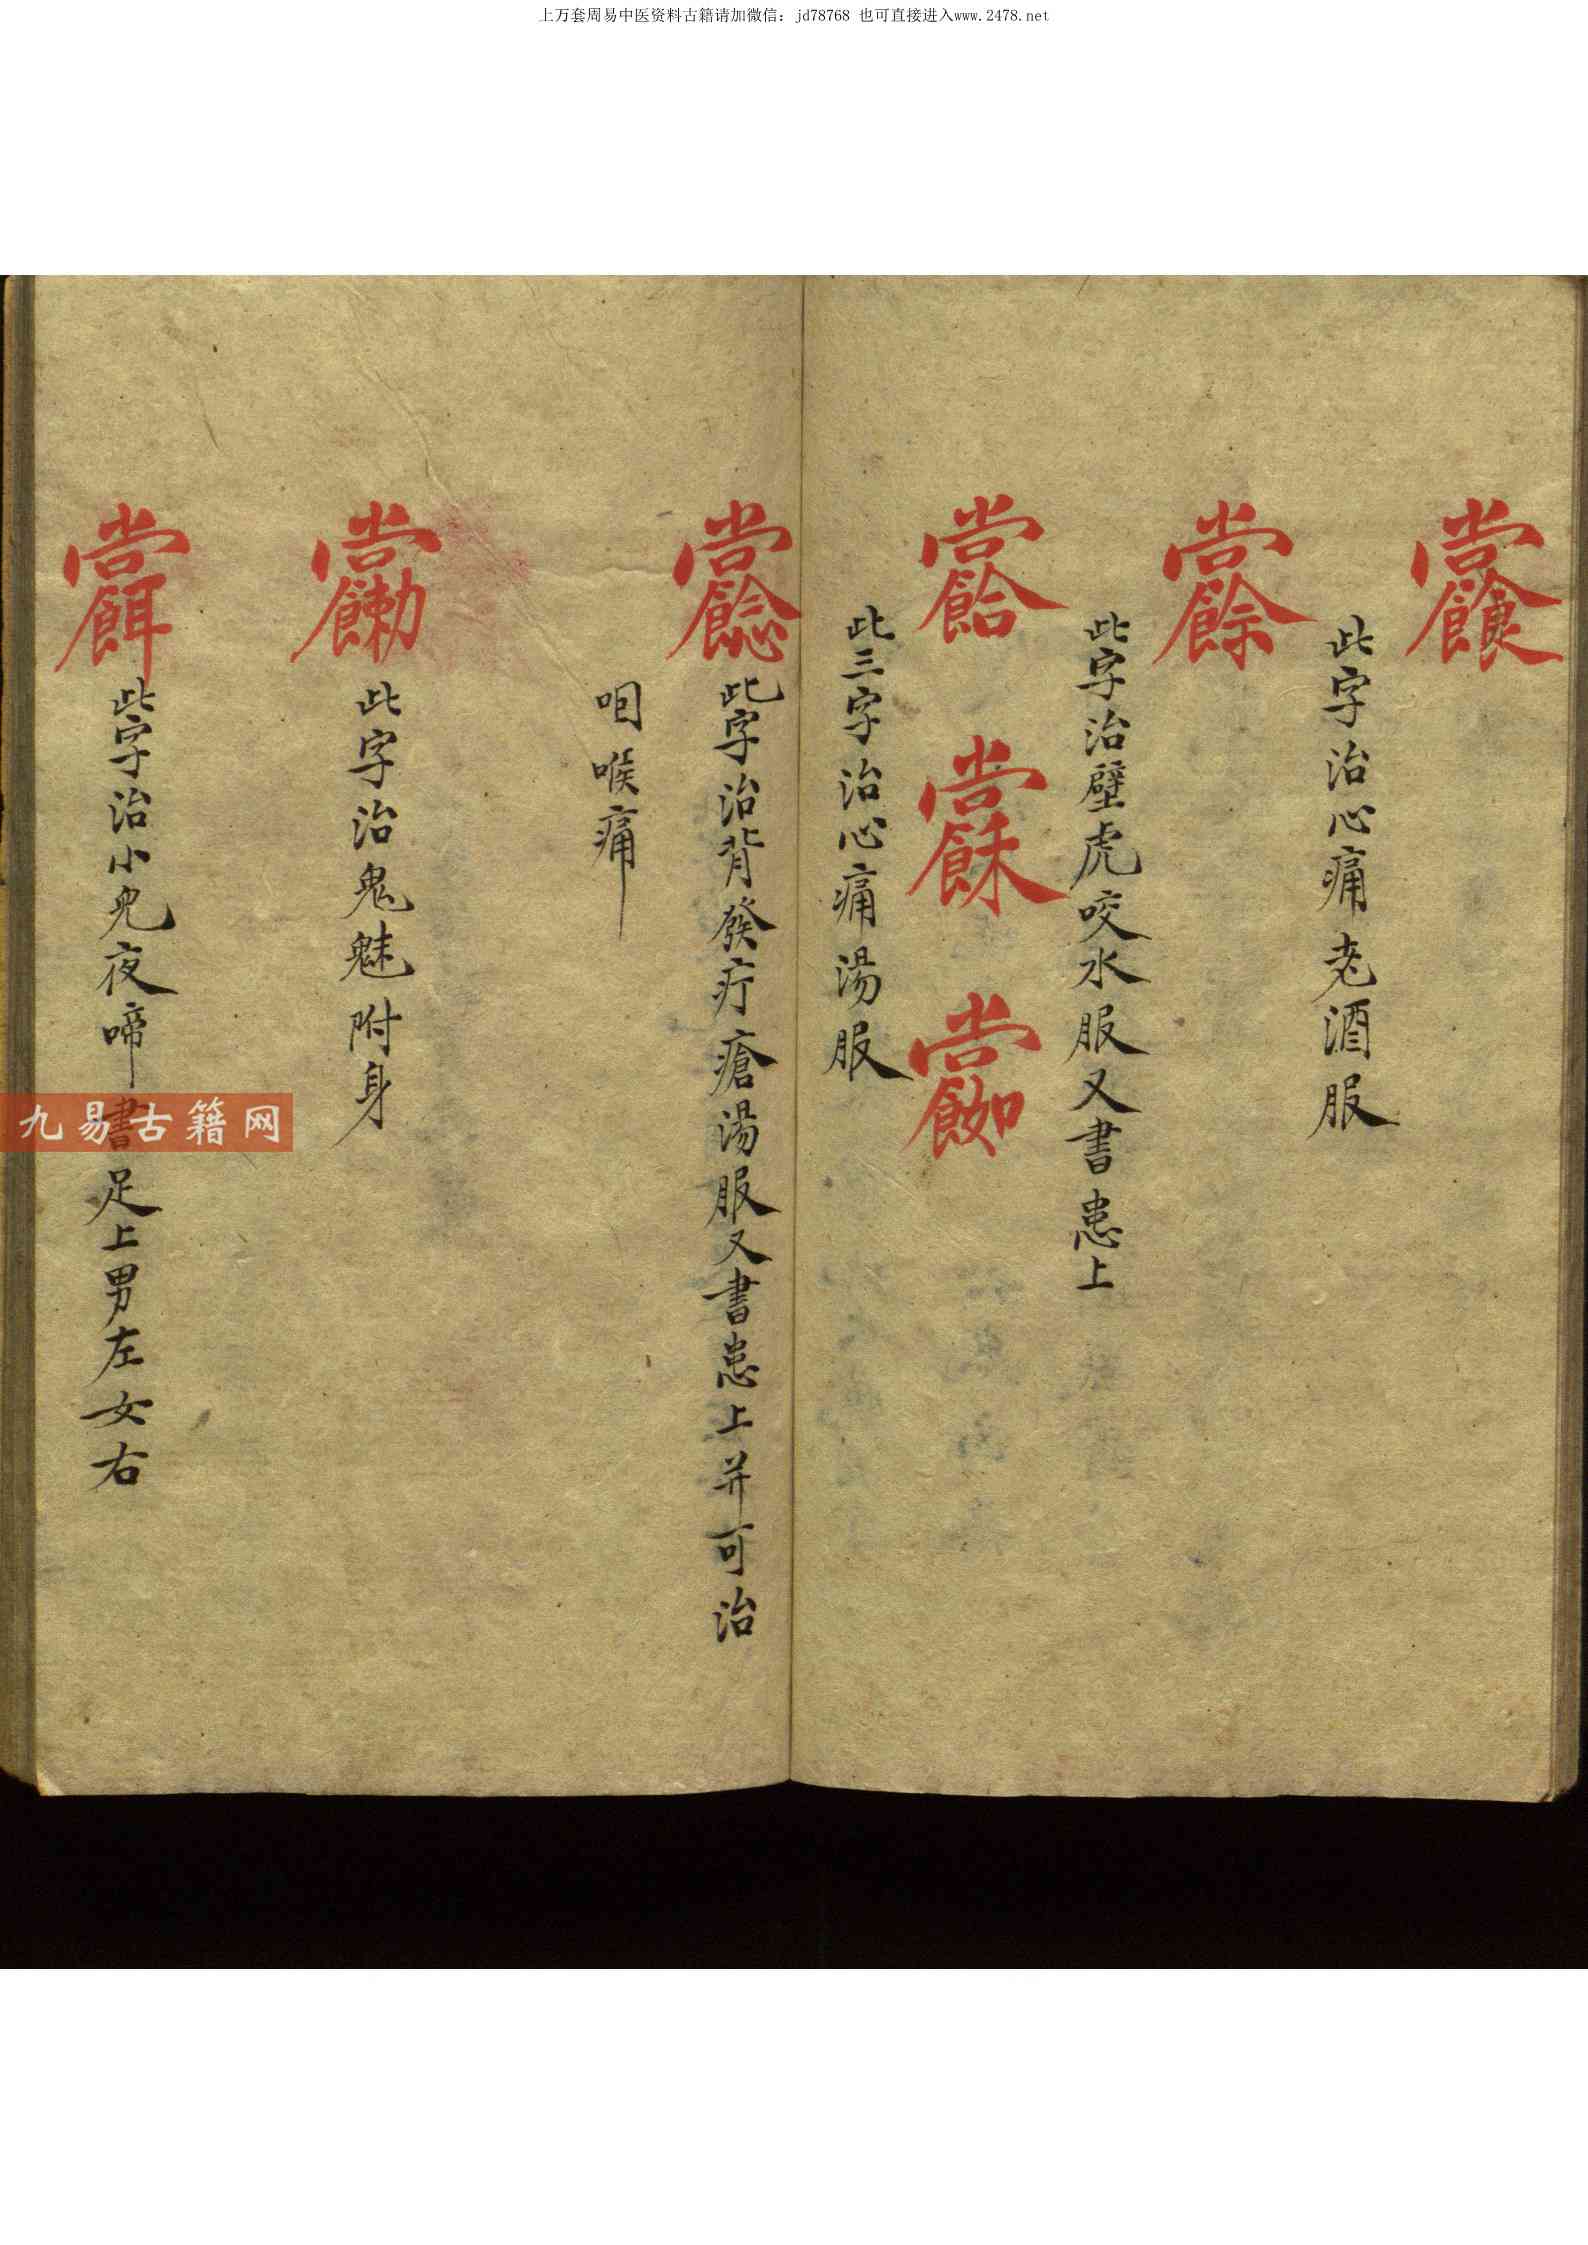 上万套周易中医资料古籍请加微信：jd78768 也可直接进入www.2478.net
此字治心痛老酒服
此字治壁虎咬水服又書患上
此三字治心痛湯服
此字治背發疔瘡湯服又書患上并可治
咽喉痛
此字治鬼魅附身
此字治小兒夜啼書足上男左女右
九易古籍网